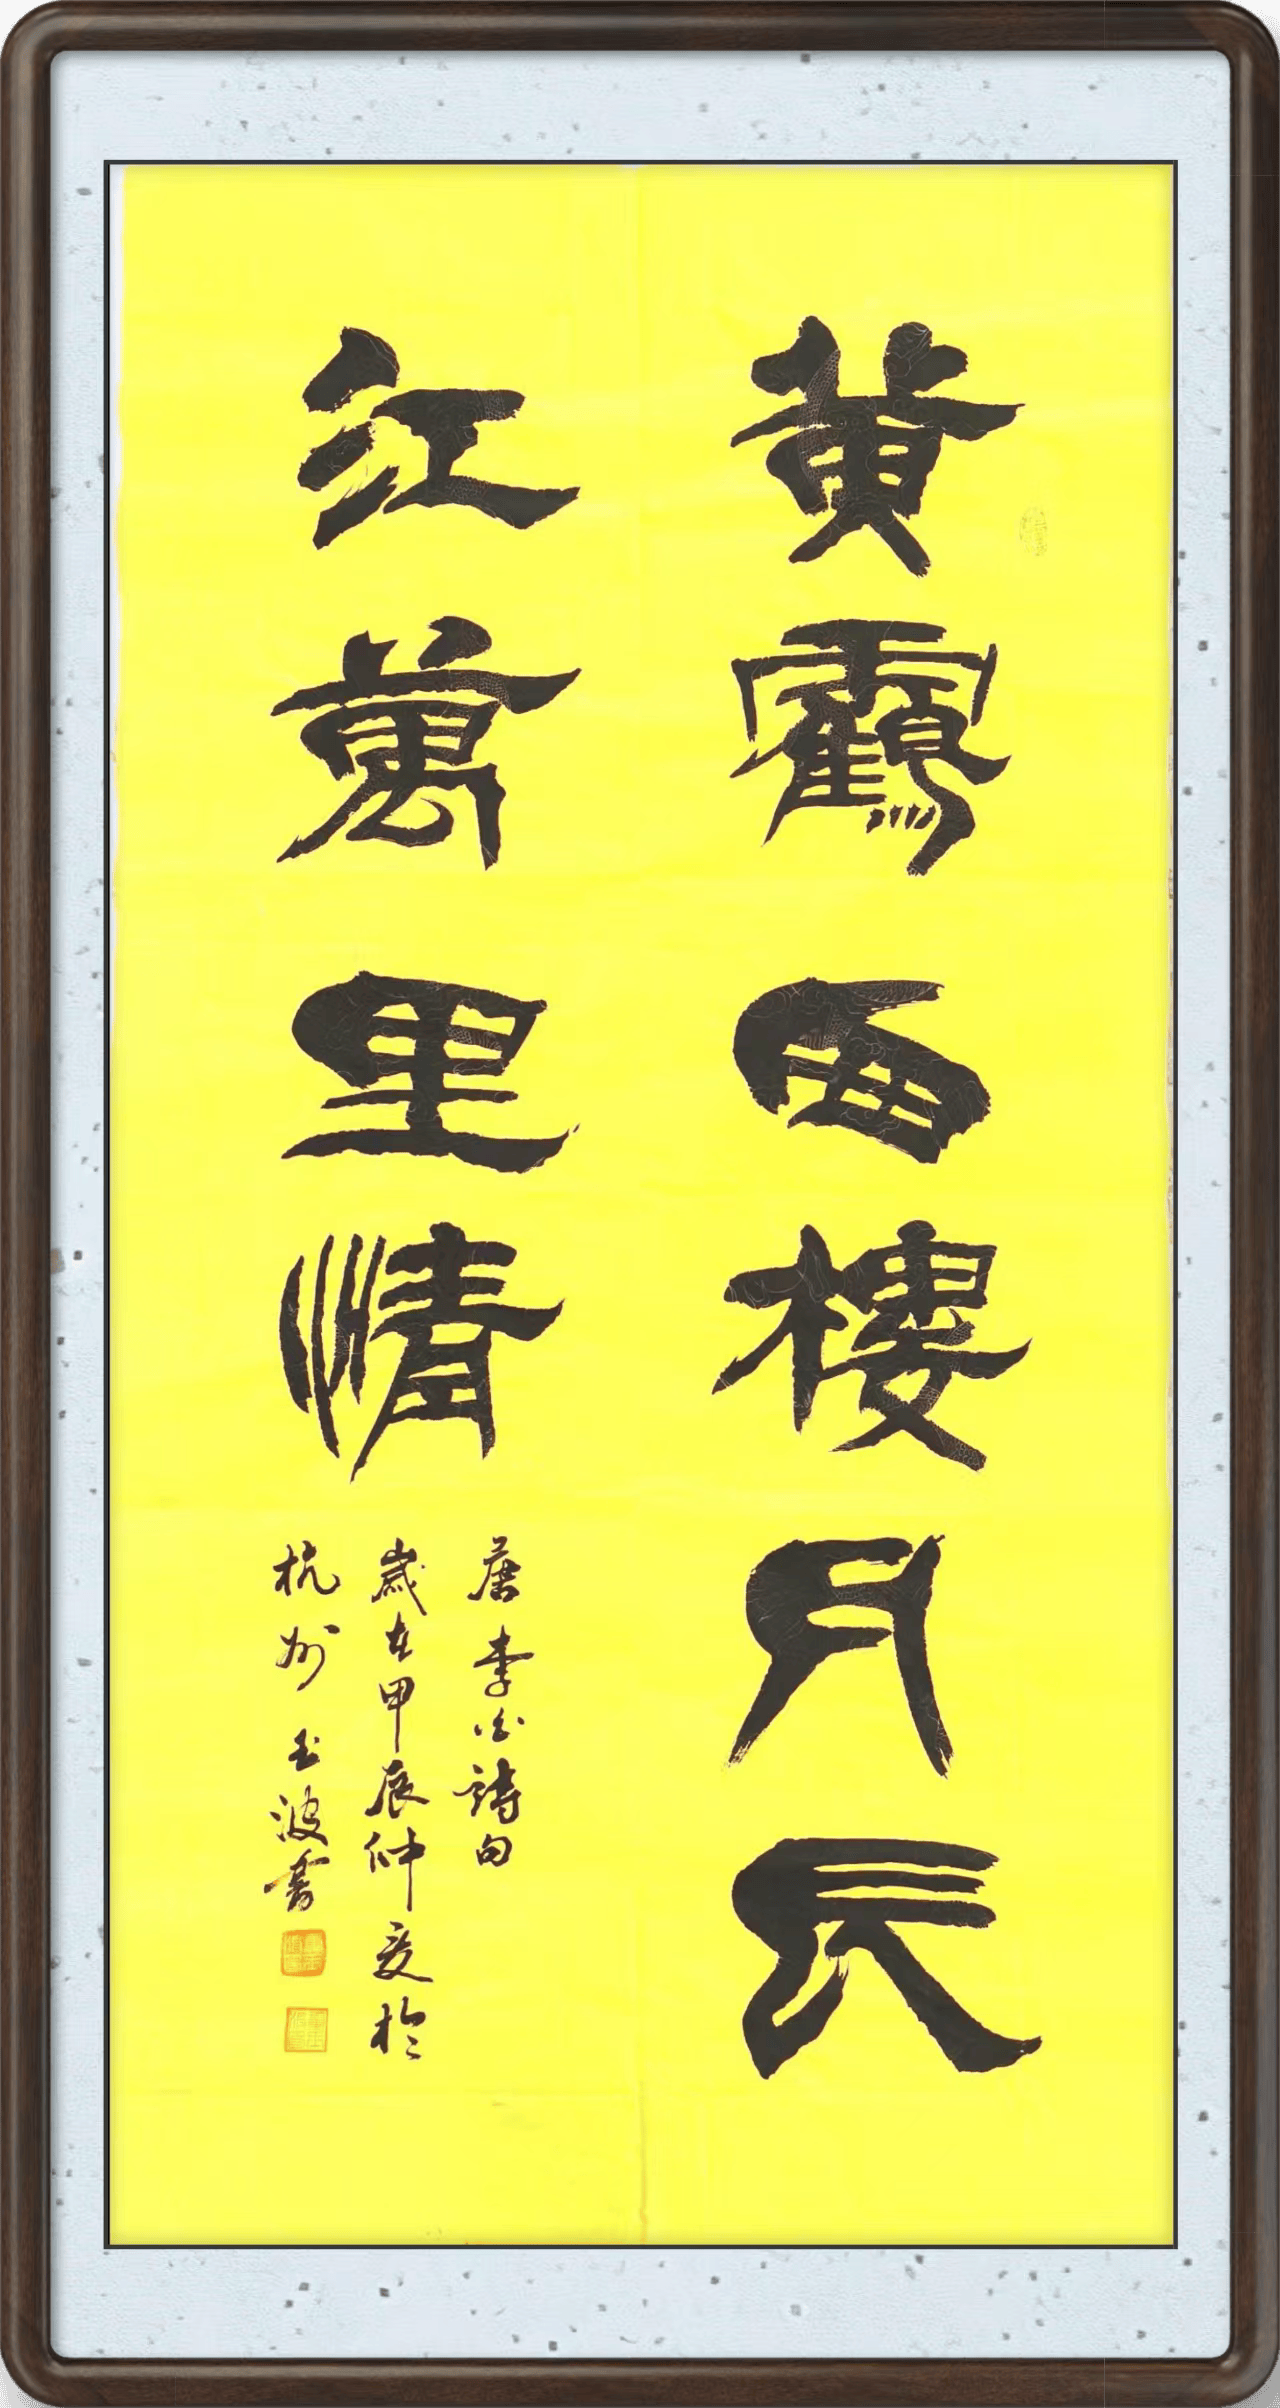 黄靏西樓月長
江萬里情
唐李白詩句
歲在甲辰仲夏於
杭州玉波書